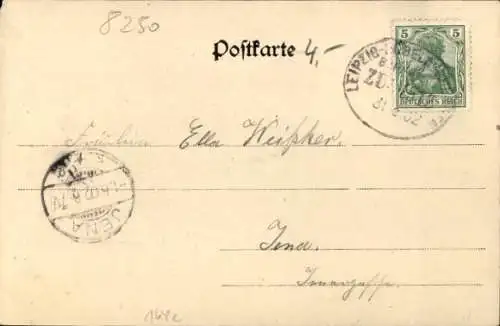 8250
Postkarte 4,-
5
DEUTSCHES REICH
LEIPZIG-
ZUG
31 02
Fräulein Ella Weißker.
JENA
Jena.
Innergasse.